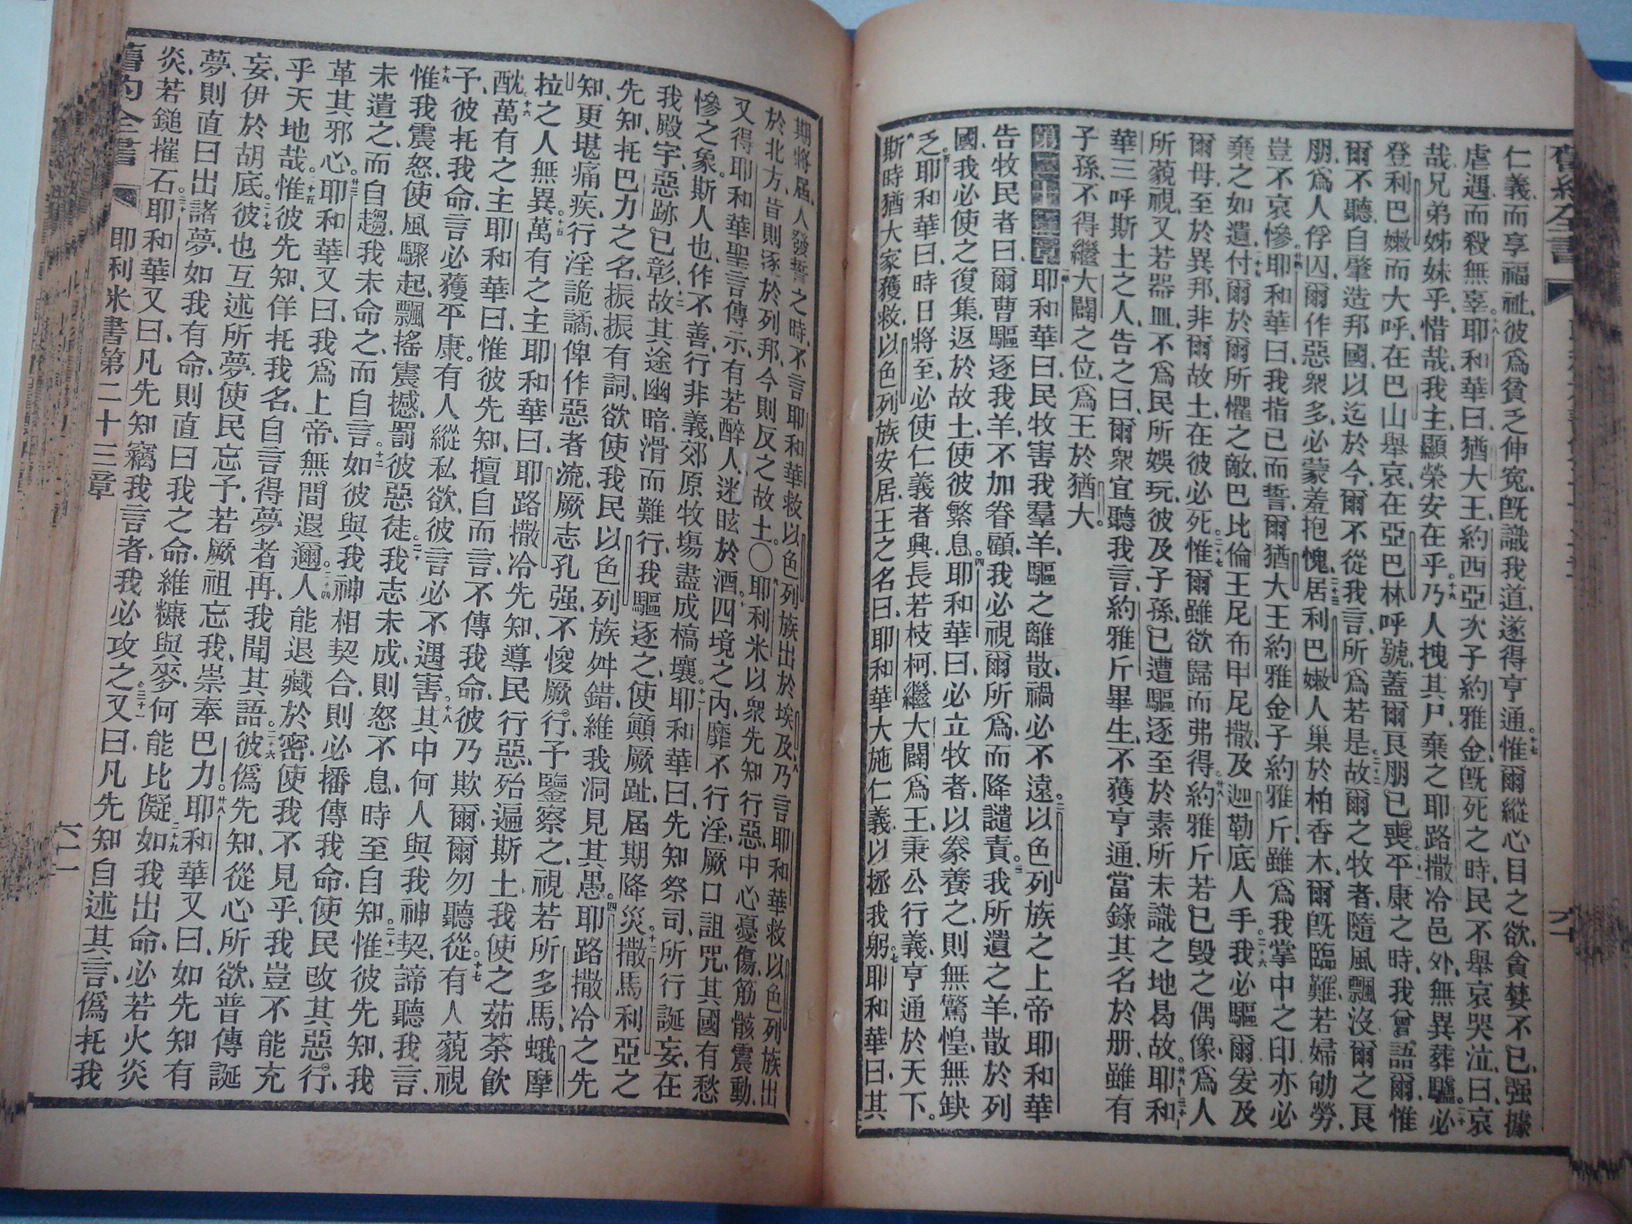 仁義而享福祉、彼爲貧乏伸冤、旣識我道、遂得亨通、惟爾縱心目之欲、貪婪不已、强據
虐遇、而殺無辜、耶和華曰、猶大王約西亞次子約雅金、旣死之時、民不舉哀哭泣、曰、哀
哉兄弟姊妹乎、惜哉、我主顯榮安在乎、乃人拽其尸、棄之耶路撒冷邑外、無異葬驢、必
登利巴嫩而大呼、在巴山舉哀、在亞巴林呼號、蓋爾良朋已喪、平康之時、我曾語爾、惟
爾不聽、自肇造邦國、以迄於今、爾不從我言、所爲若是、故爾之牧者、隨風飄沒、爾之良
朋、爲人俘囚、爾作惡衆多、必蒙羞抱愧、居利巴嫩人、巢於柏香木、爾旣臨難、若婦劬勞、
豈不哀慘、耶和華曰、我指己而誓、爾猶大王約雅金子約雅斤、雖爲我掌中之印、亦必
棄之如遺、付爾於爾所懼之敵、巴比倫王尼布甲尼撒、及迦勒底人手、我必驅爾、爰及
爾母、至於異邦、非爾故土、在彼必死、惟爾雖欲歸而弗得、約雅斤若已毀之偶像、爲人
所藐視、又若器皿、不爲民所娛玩、彼及子孫、已遭驅逐、至於素所未識之地、曷故、耶和
華三呼斯土之人、告之曰、爾衆宜聽我言、約雅斤畢生、不獲亨通、當錄其名於册、雖有
子孫、不得繼大闢之位、爲王於猶大。
耶和華曰、民牧害我羣羊、驅之離散、禍必不遠、以色列族之上帝耶和華
告牧民者曰、爾曹驅逐我羊、不加眷顧、我必視爾所爲、而降譴責、我所遺之羊、散於列
國、我必使之復集、返於故土、使彼繁息、耶和華曰、必立牧者、以豢養之、則無驚惶、無缺
乏、耶和華曰、時日將至、必使仁義者興、長若枝柯、繼大闢爲王、秉公行義、亨通於天下。
斯時猶大家獲救、以色列族安居、王之名曰、耶和華大施仁義、以拯我躬、耶和華曰、其
期將屆、人發誓之時、不言耶和華救以色列族出於埃及、乃言耶和華救以色列族出
於北方、昔則逐於列邦、今則反之故土。○耶利米以衆先知行惡、中心憂傷、筋骸震動、
又得耶和華聖言傳示、有若醉人、迷眩於酒、四境之內、靡不行淫、厥口詛咒、其國有愁
慘之象、斯人也、作不善、行非義、郊原牧場、盡成槁壤、耶和華曰、先知祭司、所行誕妄、在
我殿宇、惡跡已彰、故其途幽暗、滑而難行、我驅逐之、使顚厥趾、屆期降災、撒馬利亞之
先知、托巴力之名、振振有詞、欲使我民以色列族舛錯、維我洞見其愚、耶路撒冷之先
知、更堪痛疾、行淫詭譎、俾作惡者流、厥志孔强、不悛厥行、予鑒察之、視若所多馬蛾摩
拉之人無異、萬有之主耶和華曰、耶路撒冷先知、導民行惡、殆遍斯土、我使之茹荼飮
酖、萬有之主耶和華曰、惟彼先知、擅自而言、不傳我命、彼乃欺爾、爾勿聽從、有人藐視
予、彼托我命、言必獲平康、有人縱私欲、彼言必不遇害、其中何人與我神契、諦聽我言、
惟我震怒、使風驟起、飄搖震撼、罰彼惡徒、我志未成、則怒不息、時至自知、惟彼先知、我
未遣之、而自趨、我未命之、而自言、如彼與我神相契合、則必播傳我命、使民改其惡行、
革其邪心、耶和華又曰、我爲上帝、無間遐邇、人能退藏於密、使我不見乎、我豈不能充
乎天地哉、惟彼先知、佯托我名、自言得夢者再、我聞其語、彼僞先知、從心所欲、普傳誕
妄、伊於胡底、彼也互述所夢、使民忘予、若厥祖忘我、崇奉巴力、耶和華又曰、如先知有
夢、則直曰出諸夢、如我有命、則直曰我之命、維糠與麥、何能比儗、如我出命、必若火炎
炎、若鎚摧石、耶和華又曰、凡先知竊我言者、我必攻之、又曰、凡先知自述其言、僞托我
舊約全書 耶利米書第二十三章 六十一